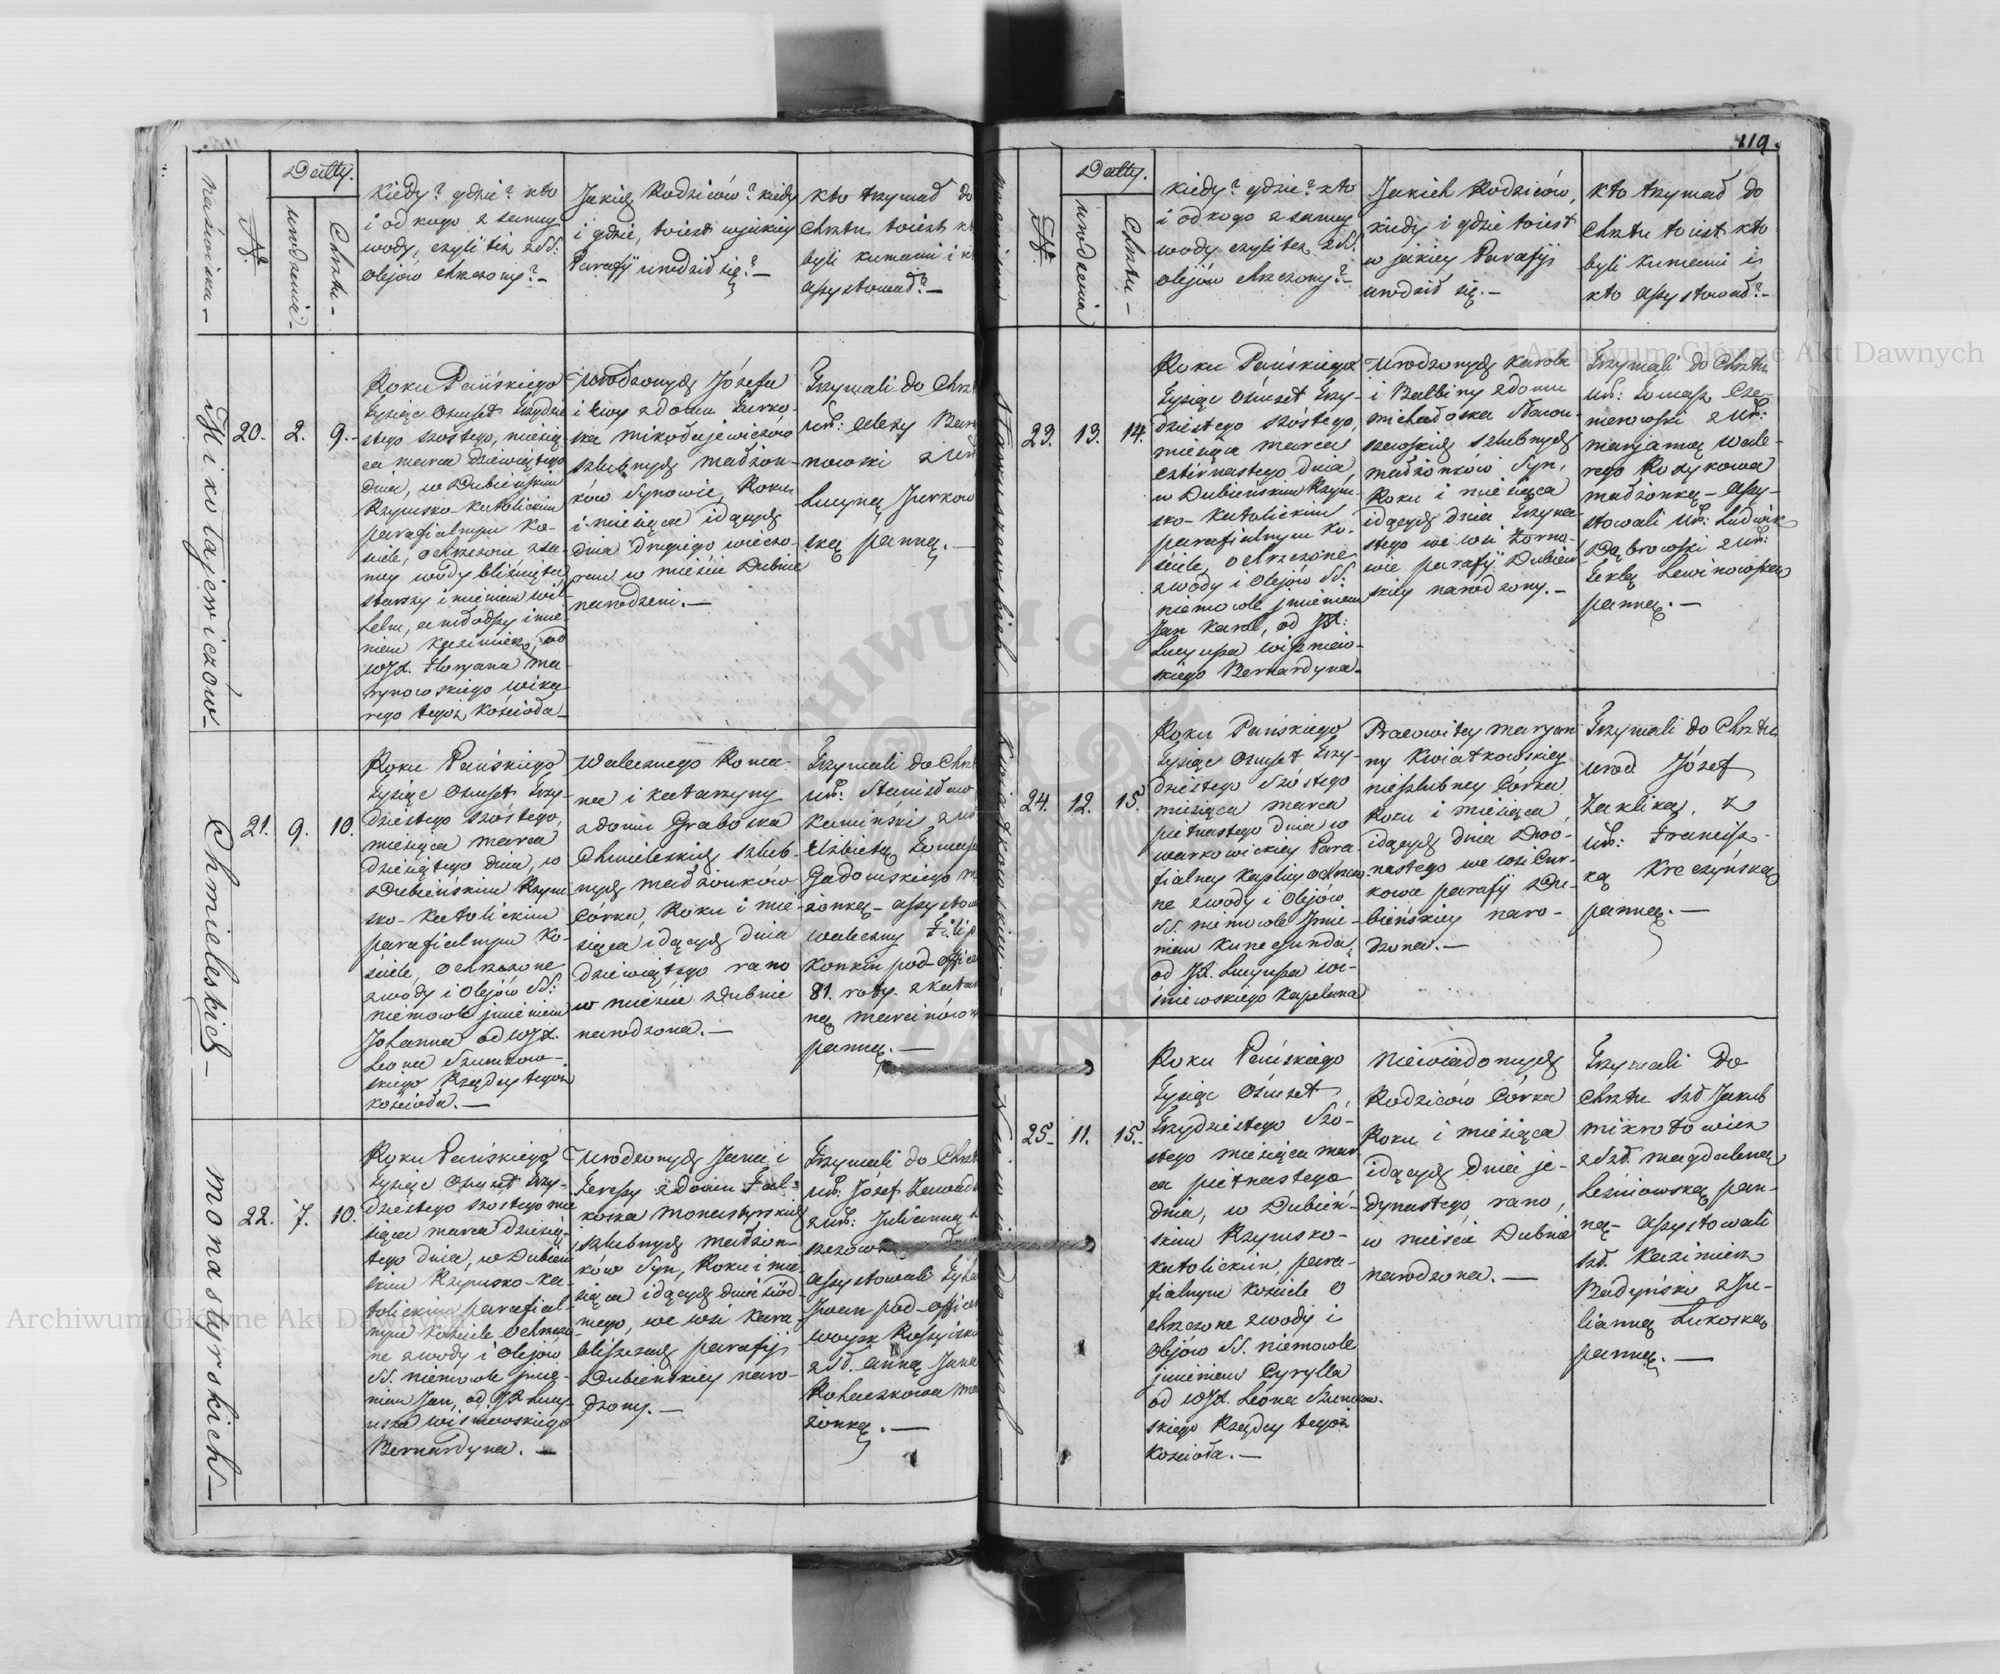 119.
Nazwiska -
N.
Datty.
urodzenia -
Chrztu -
Kiedy? gdzie? kto
i od kogo z samey
wody, czyli też z SS:
Olejów chrzczony? -
Jakich Rodziców? kiedy
i gdzie, toiest w jakiey
Parafij urodził się? -
Kto trzymał do
Chrztu toiest
byli kumami i
assystował? -
Mikołajewiczów -
20.
2.
9.
Roku Pańskiego
Tysiąc Osmset Trzydzie
stego szóstego, miesią
ca marca dziewiątego
dnia, w Dubieńskim
Rzymsko-Katolickim
parafialnym Ko-
ściele, ochrzczone z sa-
mey wody bliźnięta,
starszy imieniem Wil-
helm, a młodszy imie-
niem Kazimierz, od
WJX. Floryana Ma-
rynowskiego Wika
rego tegoż Kościoła -
Urodzonych Józefa
i Ewy z domu
ska Mikołajewiczów
szlubnych małżon-
ków Synowie, Roku
i miesiąca idących
dnia drugiego wieczo-
rem w mieście Dubnie
narodzeni. -
Trzymali do Chrztu
Ur:
nowski z Ur
Lucyną
ską panną. -
Chmieleskich -
21.
9.
10.
Roku Pańskiego
Tysiąc Osmset Trzy-
dziestego szóstego,
miesiąca marca
dziesiątego dnia, w
Dubieńskim Rzym
sko-Katolickim
parafialnym Ko-
ściele, ochrzczone
z wody i Olejów SS:
niemowle imieniem
Johanna od WJX.
Leona Szumkow-
skiego Rządcy tegoż
Kościoła. -
Walecznego Roma
na i Katarzyny
z domu Graboska
Chmieleskich szlub-
nych małżonków
Córka, Roku i mie-
siąca idących dnia
dziewiątego rano
w mieście Dubnie
narodzona. -
Trzymali do Chrz
Ur: Stanisław
Kamiński z Ur
Elżbietą Tomasz
Gadomskiego m
żonką - assystow
waleczny Filip
Konkin pod-offic
81. roty z Kata
ną Marcinów
panną. -
Monastyrskich -
22.
7.
10.
Roku Pańskiego
Tysiąc Osmset Trzy-
dziestego szóstego mie
siąca marca dziesią-
tego dnia, w Dubień
skim Rzymsko-Ka-
tolickim parafial-
nym Kościele ochrzczo
ne z wody i Olejów
SS. niemowle imie-
niem Jan, od JX Lucy
usza Wiśniewskiego
Bernardyna. -
Urodzonych Jana i
Teressy z domu Fal-
koska Monastyrskich
szlubnych małżon-
ków Syn, Roku i mie
siąca idących dnia siód
mego, we wsi Kara-
bliszczach parafij
Dubieńskiey naro-
dzony. -
Trzymali do Chrzt
Ur: Józef Zawad
z Ur: Julianną
assystowali
Iwan pod-offic
woysk Rossyisk
z Sł. Anną Jana
Kohaczkowa ma
żonką. -
Nazwiska
N.
Datty.
urodzenia
Chrztu -
Kiedy? gdzie? kto
i od kogo z samey
wody czyli też z SS.
olejów chrzczony? -
Jakich Rodziców,
kiedy i gdzie toiest
w jakiey Parafij
urodził się. -
Kto trzymał do
Chrztu toiest kto
byli kumami i
kto assystował? -
23.
13.
14.
Roku Pańskiego
Tysiąc Ośmset Trzy-
dziestego szóstego,
miesiąca marca
czternastego dnia,
w Dubieńskim Rzym-
sko-Katolickim
parafialnym Ko-
ściele, ochrzczone
z wody i Olejów SS.
niemowle jmieniem
Jan Karol, od JX:
Lucyusza Wiszniew-
skiego Bernardyna -
Urodzonych Karola
i Balbiny z domu
Michałoska
szlubnych
małżonków Syn,
Roku i miesiąca
idących dnia Trzyna-
stego we wsi Żorna-
wie parafij Dubień
skiey narodzony. -
Trzymali do Chrztu
Ur: Tomasz Cze-
merowski z Ur:
Maryanną Wale-
rego Rozykowa
małżonką - assy-
stowali Ur: Ludwik
Dąbrowski z Ur:
Teklą Lewinowską
panną. -
Kwiatkowskiey -
24.
12.
15.
Roku Pańskiego
Tysiąc Osmset Trzy-
dziestego Szóstego
miesiąca marca
pietnastego dnia w
Warkowickiey Para
fialney Kaplicy ochrzczo
ne z wody i Olejów
SS. niemowle Jmie-
niem Kunegunda,
od JX. Lucyusza Wi-
śniewskiego Kapelana
Pracowitey Maryan
ny Kwiatkowskiey
nieszlubney Córka
Roku i miesiąca
idących dnia Dwu-
nastego we wsi Cur-
kowa parafij Du-
bieńskiey naro-
dzona. -
Trzymali do Chrztu
Urod. Józef
Zaklika, z
Ur: Francisz-
ką Kreczyńską
panną. -
Niewiadomych -
25.
11.
15.
Roku Pańskiego
Tysiąc Ośmset
Trzydziestego Szó-
stego miesiąca mar
ca pietnastego
dnia, w Dubień-
skim Rzymsko-
Katolickim, para-
fialnym Kościele o
chrzczone z wody i
Olejów SS. niemowle
jmieniem Cyrylla
od WJX. Leona Szumkow.
skiego Rządcy tegoż
Kościoła. -
Niewiadomych
Rodziców Córka
Roku i miesiąca
idących dnia je-
dynastego rano,
w mieście Dubnie
narodzona. -
Trzymali do
Chrztu Sł Jakub
Mikołowicz
z Sł. Magdaleną
Leśniowską pan-
ną - assystowali
Sł. Kazimierz
Badyński z Ju-
lianną Łukoską
panną. -
Archiwum Główne Akt Dawnych
Archiwum Główne Akt Dawnych